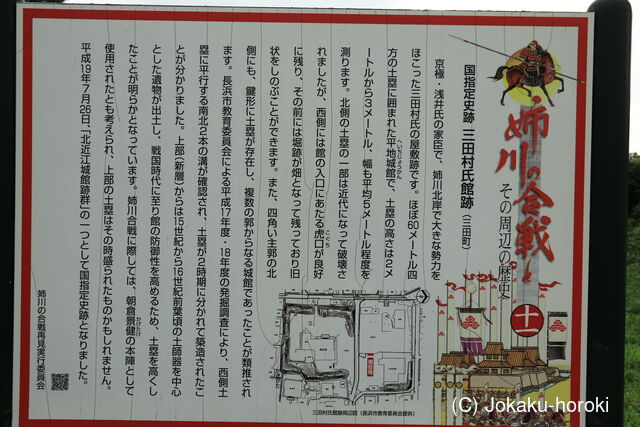 姉川の合戦と
その周辺の歴史
十一
国指定史跡 三田村氏館跡(三田町)
京極・浅井氏の家臣で、姉川北岸で大きな勢力を
ほこった三田村氏の屋敷跡です。ほぼ60メートル四
方の土塁に囲まれた平地城館で、土塁の高さは2メ
へいちじょうかん
ートルから3メートル、幅も平均5メートル程度を
測ります。北側の土塁の一部は近代になって破壊さ
れましたが、西側には館の入口にあたる虎口が良好
こぐち
に残り、その前には堀跡が畑となって残っており旧
状をしのぶことができます。また、四角い主郭の北
側にも、鍵形に土塁が存在し、複数の郭からなる城館であったことが類推され
ます。長浜市教育委員会による平成17年度・18年度の発掘調査により、西側土
塁に平行する南北2本の溝が確認され、土塁が2時期に分かれて築造されたこ
とが分かりました。上部(新層)からは15世紀から16世紀前葉頃の土師器を中心
とした遺物が出土し、戦国時代に至り館の防御性を高めるため、土塁を高くし
たことが明らかとなっています。姉川合戦に際しては、朝倉景健の本陣として
かげたけ
使用されたとも考えられ、上部の土塁はその時盛られたものかもしれません。
平成19年7月26日、「北近江城館跡群」の一つとして国指定史跡となりました。
姉川の合戦再見実行委員会
現在地
三田村氏館跡周辺図(長浜市教育委員会提供)
(C) Jokaku-horoki